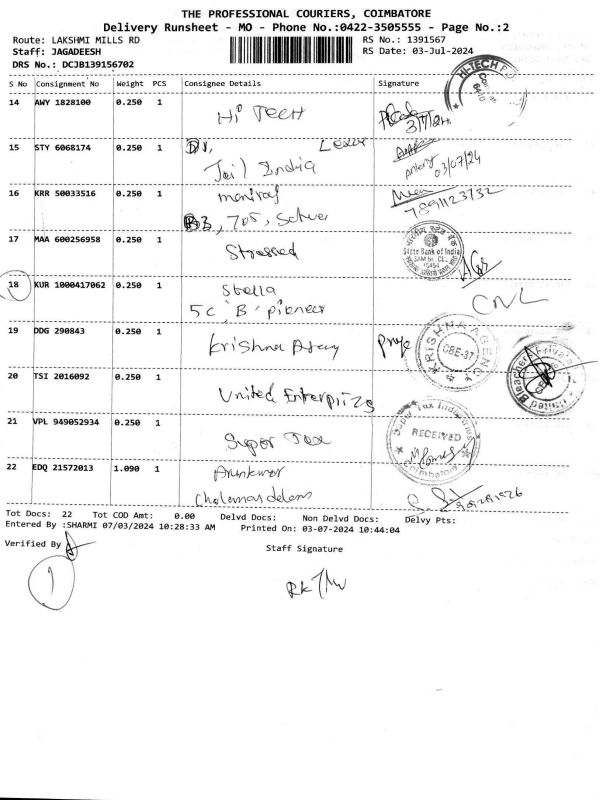 THE PROFESSIONAL COURIERS, COIMBATORE
Delivery Runsheet - MO - Phone No.:0422-3505555 - Page No.:2
Route: LAKSHMI MILLS RD
RS No.: 1391567
Staff: JAGADEESH
RS Date: 03-Jul-2024
DRS No.: DCJB139156702
S No Consignment No Weight PCS Consignee Details Signature
14 AWY 1828100 0.250 1 Hi TECH
3/7/24
HI-TECH
15 STY 6068174 0.250 1
Jail India
03/07/24
16 KRR 50033516 0.250 1
B3, 705,
7891123732
17 MAA 600256958 0.250 1 Stressed
State Bank of India
18 KUR 1000417062 0.250 1 Stella
5c, 'B' pioneer
CNL
19 DDG 290843 0.250 1 Krishna
KRISHNA AGENC
CBE-37
20 TSI 2016092 0.250 1 United Enterprizs
21 VPL 949052934 0.250 1 Super Tex
Super Tex Industries
RECEIVED
Coimbatore
22 EDQ 21572013 1.090 1 Arunkumar
Cholamandalam
Tot Docs: 22 Tot COD Amt: 0.00 Delvd Docs: Non Delvd Docs: Delvy Pts:
Entered By :SHARMI 07/03/2024 10:28:33 AM Printed On: 03-07-2024 10:44:04
Verified By
Staff Signature
1